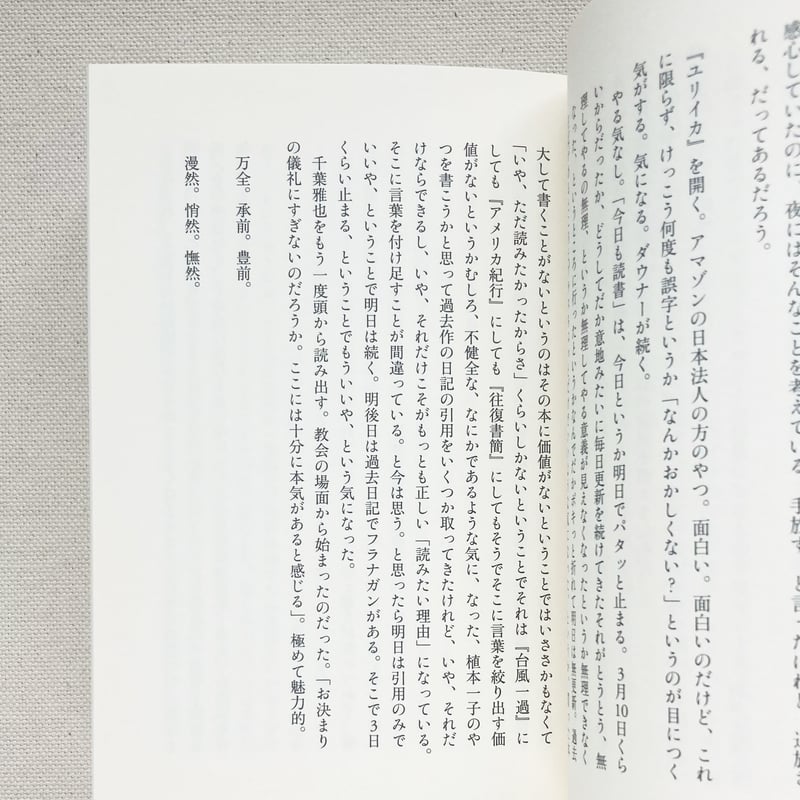 感心していたのに、夜にはそんなことを考えている。手放す、と言ったけれど、追放さ
れる、だってあるだろう。
『ユリイカ』を開く。アマゾンの日本法人の方のやつ。面白い。面白いのだけど、これ
に限らず、けっこう何度も誤字というか「なんかおかしくない?」というのが目につく
気がする。気になる。ダウナーが続く。
やる気なし。「今日も読書」は、今日というか明日でパタッと止まる。3月10日くら
いからだったか、どうしてだか意地みたいに毎日更新を続けてきたそれがとうとう、無
理してやるの無理、というか無理してやる意義が見えなくなったというか無理できなく
なった、というところに行ったというかなんでだかポキっと折れて明日は無更新。過去
大して書くことがないというのはその本に価値がないということではいささかもなくて
「いや、ただ読みたかったからさ」くらいしかないということでそれは『台風一過』に
しても『アメリカ紀行』にしても『往復書簡』にしてもそうでそこに言葉を絞り出す価
値がないというかむしろ、不健全な、なにかであるような気に、なった、植本一子のや
つを書こうかと思って過去作の日記の引用をいくつか取ってきたけれど、いや、それだ
けならできるし、いや、それだけこそがもっとも正しい「読みたい理由」になっている。
そこに言葉を付け足すことが間違っている。と今は思う。と思ったら明日は引用のみで
いいや、ということで明日は続く。明後日は過去日記でフラナガンがある。そこで3日
くらい止まる、ということでもういいや、という気になった。
千葉雅也をもう一度頭から読み出す。教会の場面から始まったのだった。「お決まり
の儀礼にすぎないのだろうか。ここには十分に本気があると感じる」。極めて魅力的。
万全。承前。豊前。
漫然。悄然。憮然。